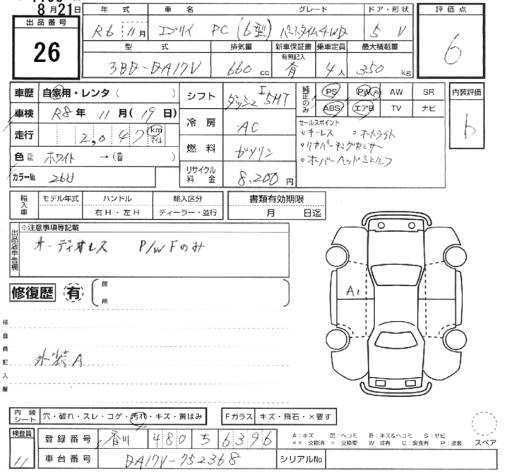 8月21日
出品番号
26
年式 車名 グレード ドア・形状
R6年11月 エブリイ PC(6型) パートタイム4WD 5 V
評価点
6
型式 排気量 新車保証書 有照記入 乗車定員 最大積載量
3BD-DA17V 660cc 有 4人 350kg
車歴 自家用・レンタ( )
車検 R8年11月(19日)
走行 2,047 km マイル
色 ホワイト →(有)
カラーNo. 26U
シフト 5MT
冷房 AC
燃料 ガソリン
リサイクル料金 8,200円
純正のみ PS PW AW SR
ABS エアB TV ナビ
セールスポイント
○キーレス ○オートライト
○リヤパーキングセンサー
○オーバーヘッドシェルフ
内装評価
輸入車 モデル年式 ハンドル 輸入区分
右H・左H ディーラー・並行
書類有効期限
月 日迄
出品店申告欄
※注意事項等記載
オーディオレス P/W Fのみ
修復歴 有 箇所
検査員記入欄
A1
内装シート 穴・破れ・スレ・コゲ・汚れ・キズ・黄ばみ
Fガラス キズ・飛石・×要す
A:キズ U:ヘコミ B:キズ&ヘコミ S:サビ
スペア
検査員 11
登録番号 香川 480 い 6396
車台番号 DA17V-752368
シリアルNo.